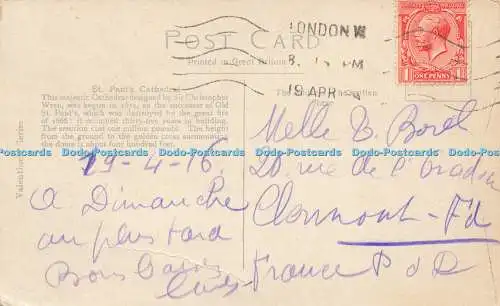 LONDON W
19 APR
ONE PENNY
POST CARD
Printed in Great Britain
St. Paul's Cathedral
This majestic Cathedral designed by Sir Christopher
Wren, was begun in 1675, as the successor of Old
St. Paul's, which was destroyed by the great fire
of 1666. It occupied thirty-five years in building.
The erection cost one million pounds. The height
from the ground to the golden cross surmounting
the dome is about four hundred feet.
Valentines Series
19-4-16.
A Dimanche
au plus tard
Bons baisers
Melle Borel
20 rue de l'
Clermont-Fd
France P d D
Dodo-Postcards Dodo-Postcards Dodo-Postcards Dodo-Postcards